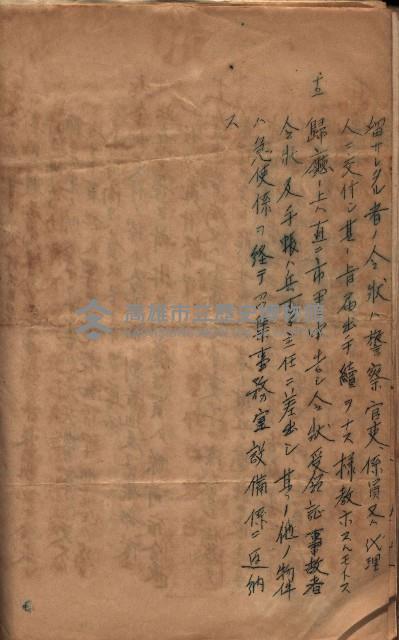 留サレタル者ノ令狀ハ警察官吏係員又ハ代理
人ニ交付シ其ノ旨届出手續ヲナス樣教示スルモトス
十五
歸廳ノ上ハ直ニ市尹ニ報告シ令狀受領証事故者
令狀及手帳ハ兵事主任ニ差出シ其ノ他ノ物件
ハ急使係ヲ経テ召集事務室設備係ニ返納
ス
高雄市立歷史博物館